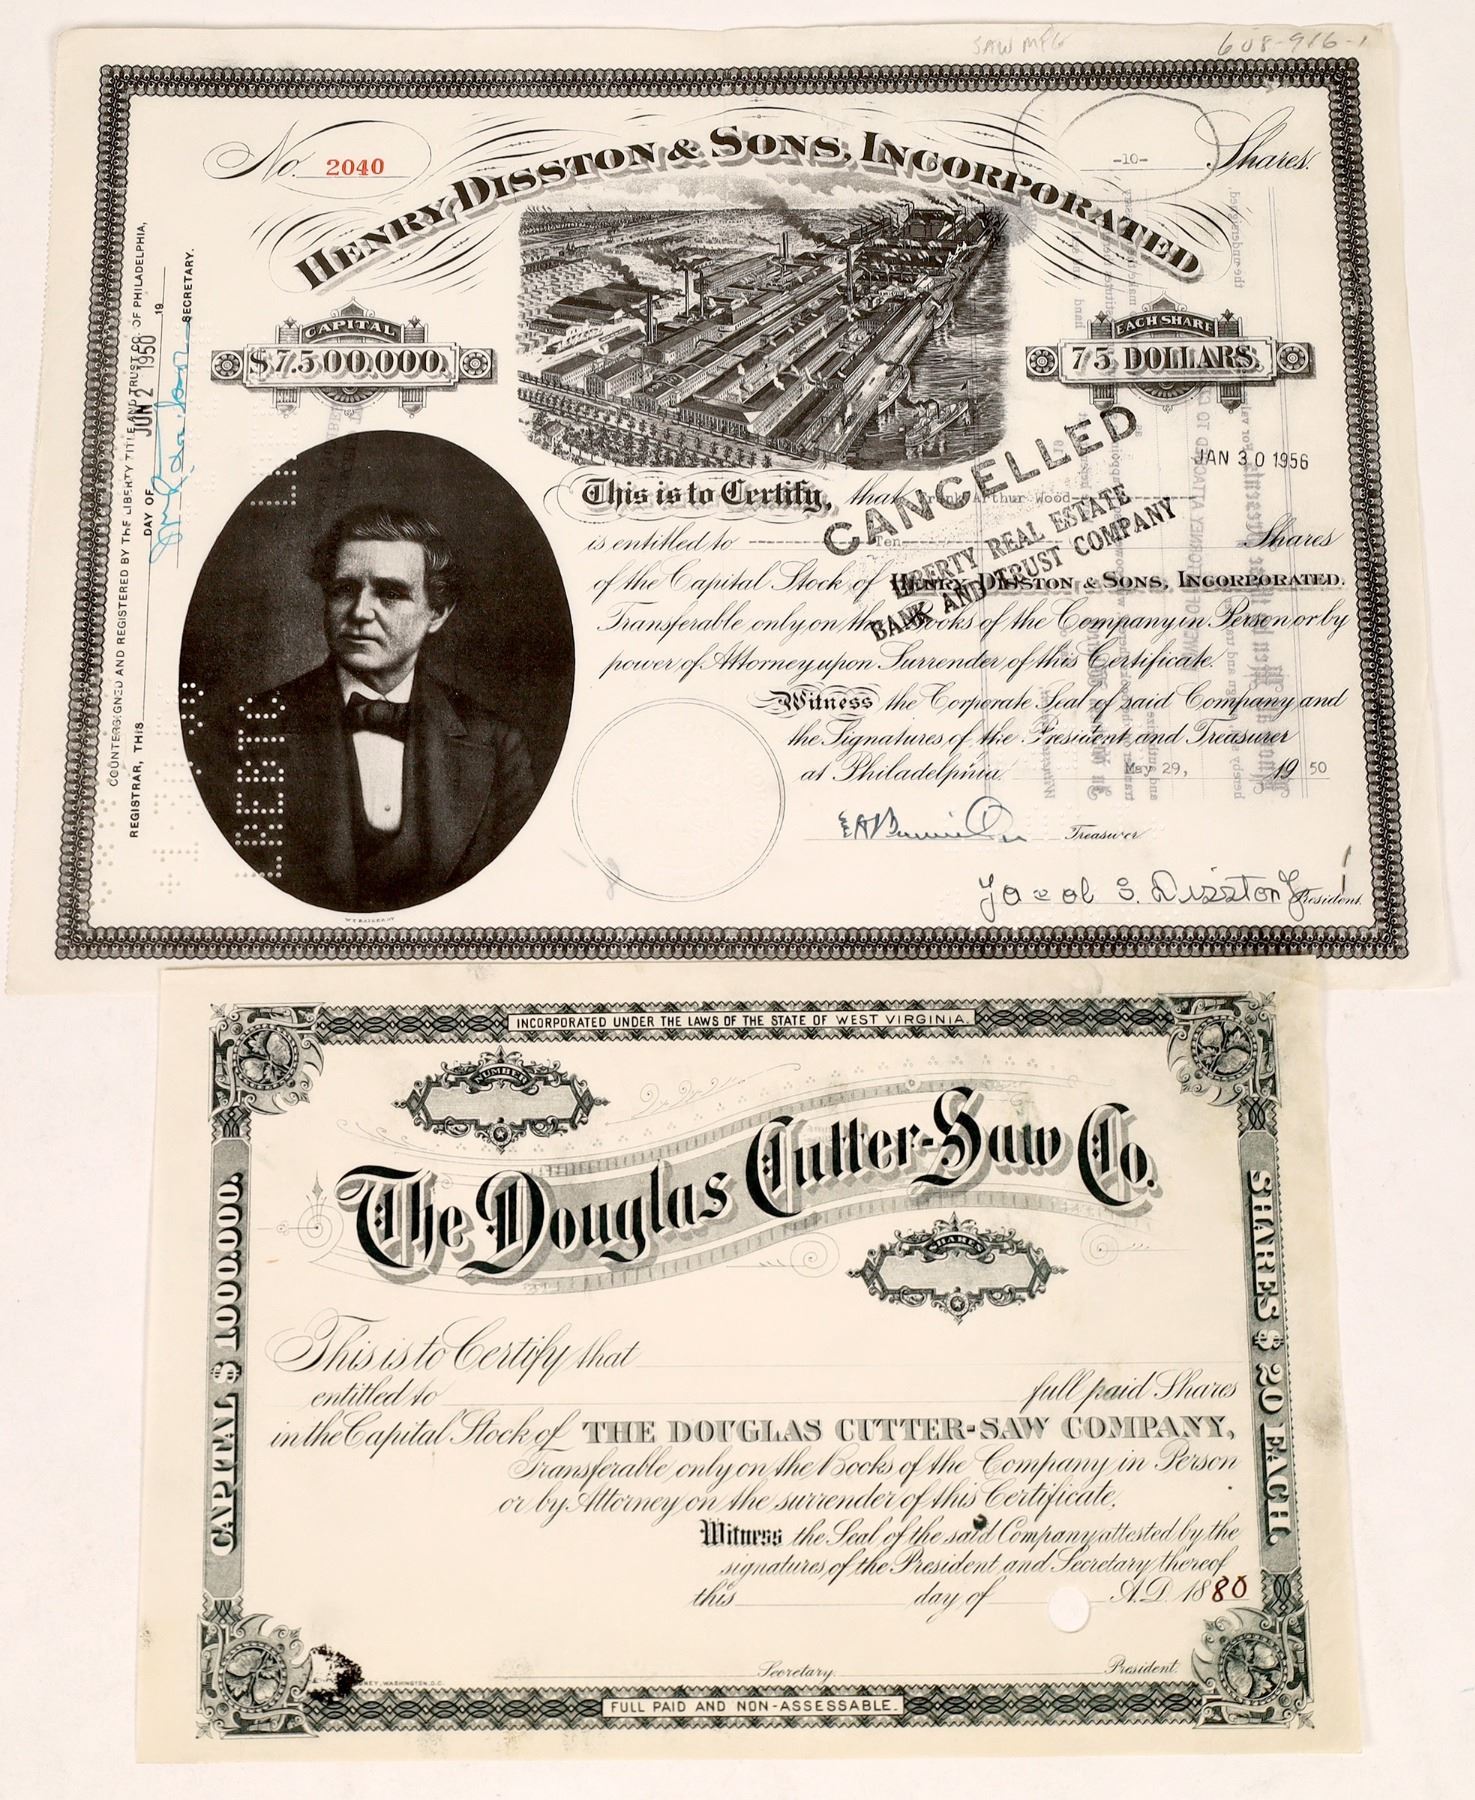 SAW MFG
608-916-1
No. 2040
-10- Shares.
HENRY DISSTON & SONS, INCORPORATED
CAPITAL
$7.500.000.
EACH SHARE
75 DOLLARS.
COUNTERSIGNED AND REGISTERED BY THE LIBERTY TITLE AND TRUST CO. OF PHILADELPHIA,
REGISTRAR, THIS DAY OF 19
JUN 2 1950
SECRETARY.
CANCELLED
LIBERTY REAL ESTATE
BANK AND TRUST COMPANY
JAN 30 1956
This is to Certify, that Frank Arthur Wood
is entitled to Ten Shares
of the Capital Stock of HENRY DISSTON & SONS, INCORPORATED.
Transferable only on the Books of the Company in Person or by
power of Attorney upon Surrender of this Certificate.
Witness the Corporate Seal of said Company and
the Signatures of the President and Treasurer
at Philadelphia May 29, 1950
Treasurer
Jacob S. Disston Jr President.
INCORPORATED UNDER THE LAWS OF THE STATE OF WEST VIRGINIA.
NUMBER
The Douglas Cutter-Saw Co.
SHARES
CAPITAL $ 1.000.000.
SHARES $ 20 EACH.
This is to Certify that
entitled to full paid Shares
in the Capital Stock of THE DOUGLAS CUTTER-SAW COMPANY,
Transferable only on the Books of the Company in Person
or by Attorney on the surrender of this Certificate.
Witness the Seal of the said Company attested by the
signatures of the President and Secretary thereof
this day of A.D. 1880
Secretary. President.
WASHINGTON, D.C.
FULL PAID AND NON-ASSESSABLE.